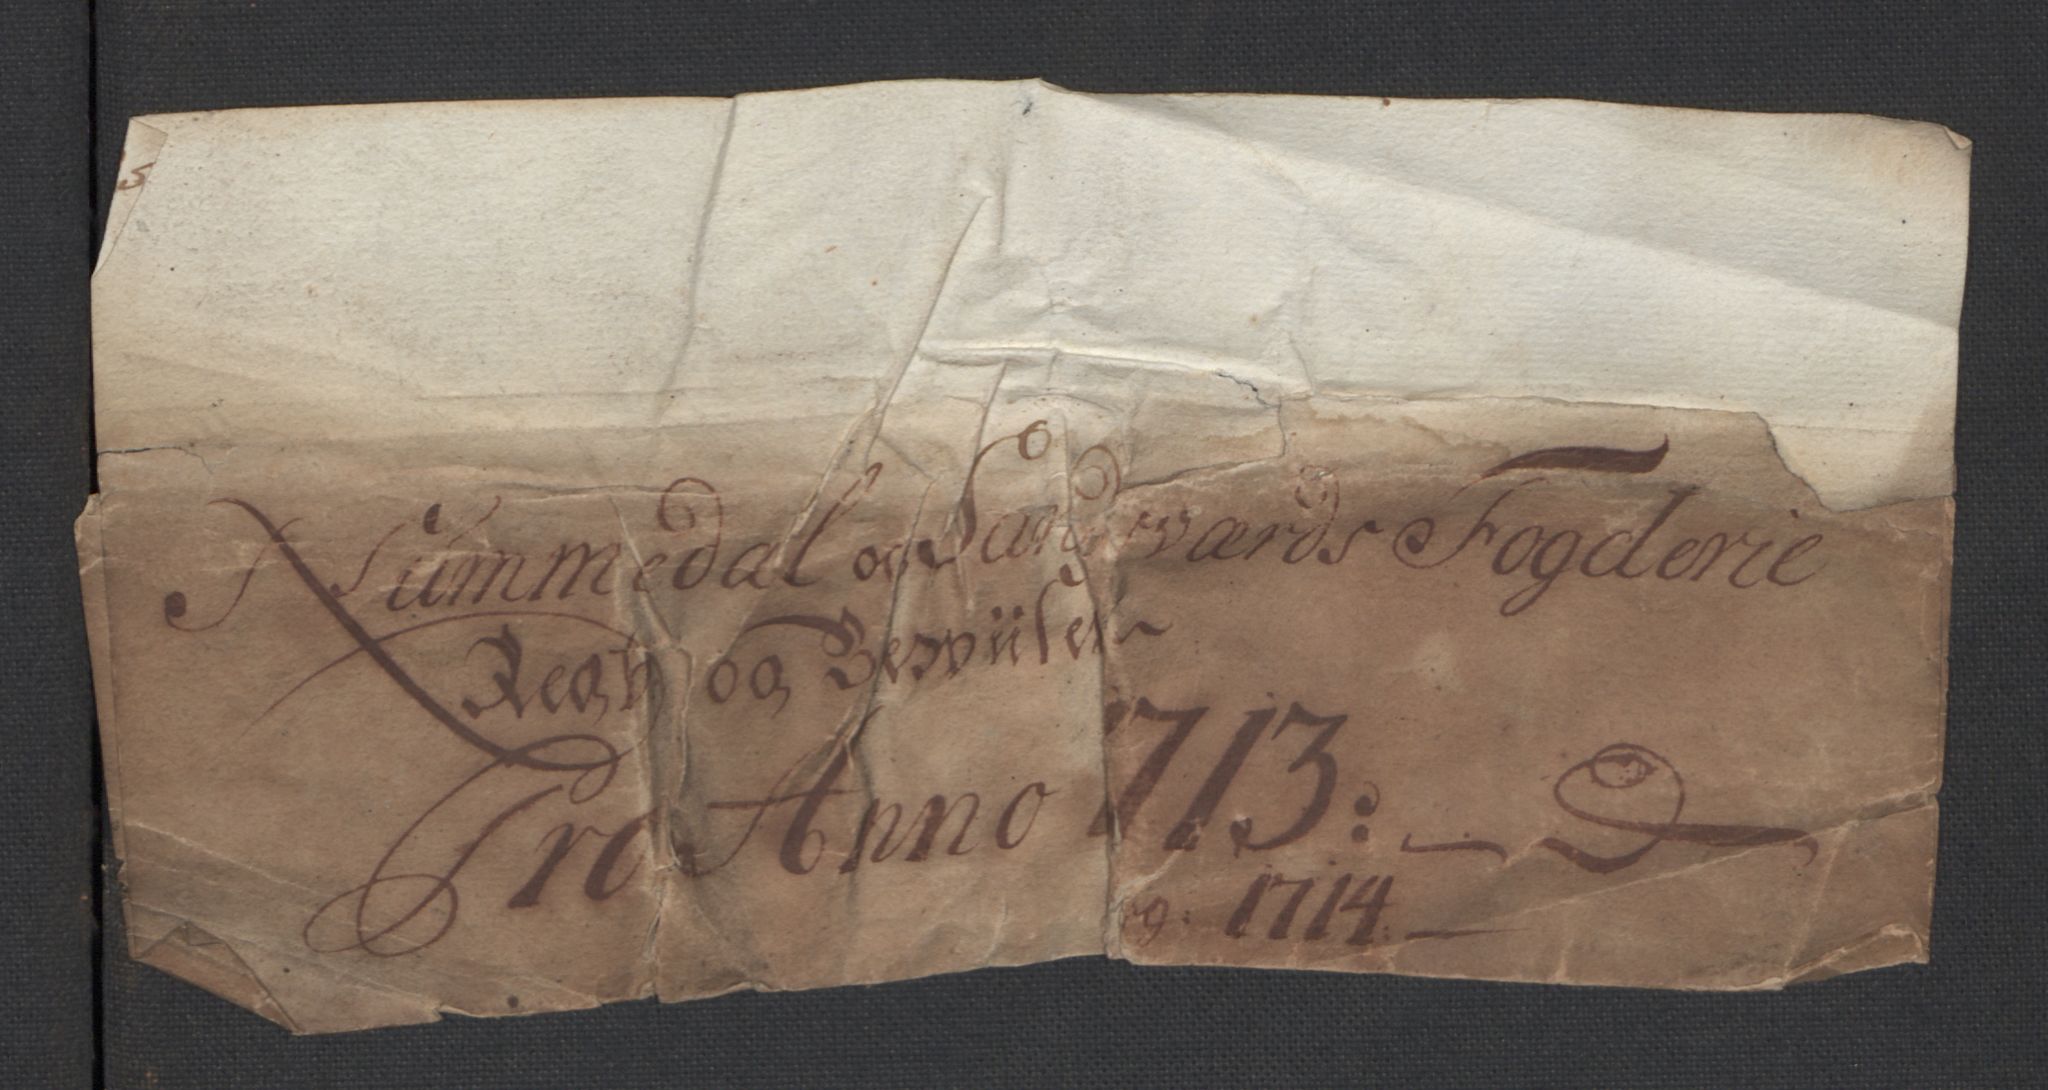 Nummedal og Sandsværds Fogderie
Regn og Bewiiser
Pro Anno 1713:
og: 1714.